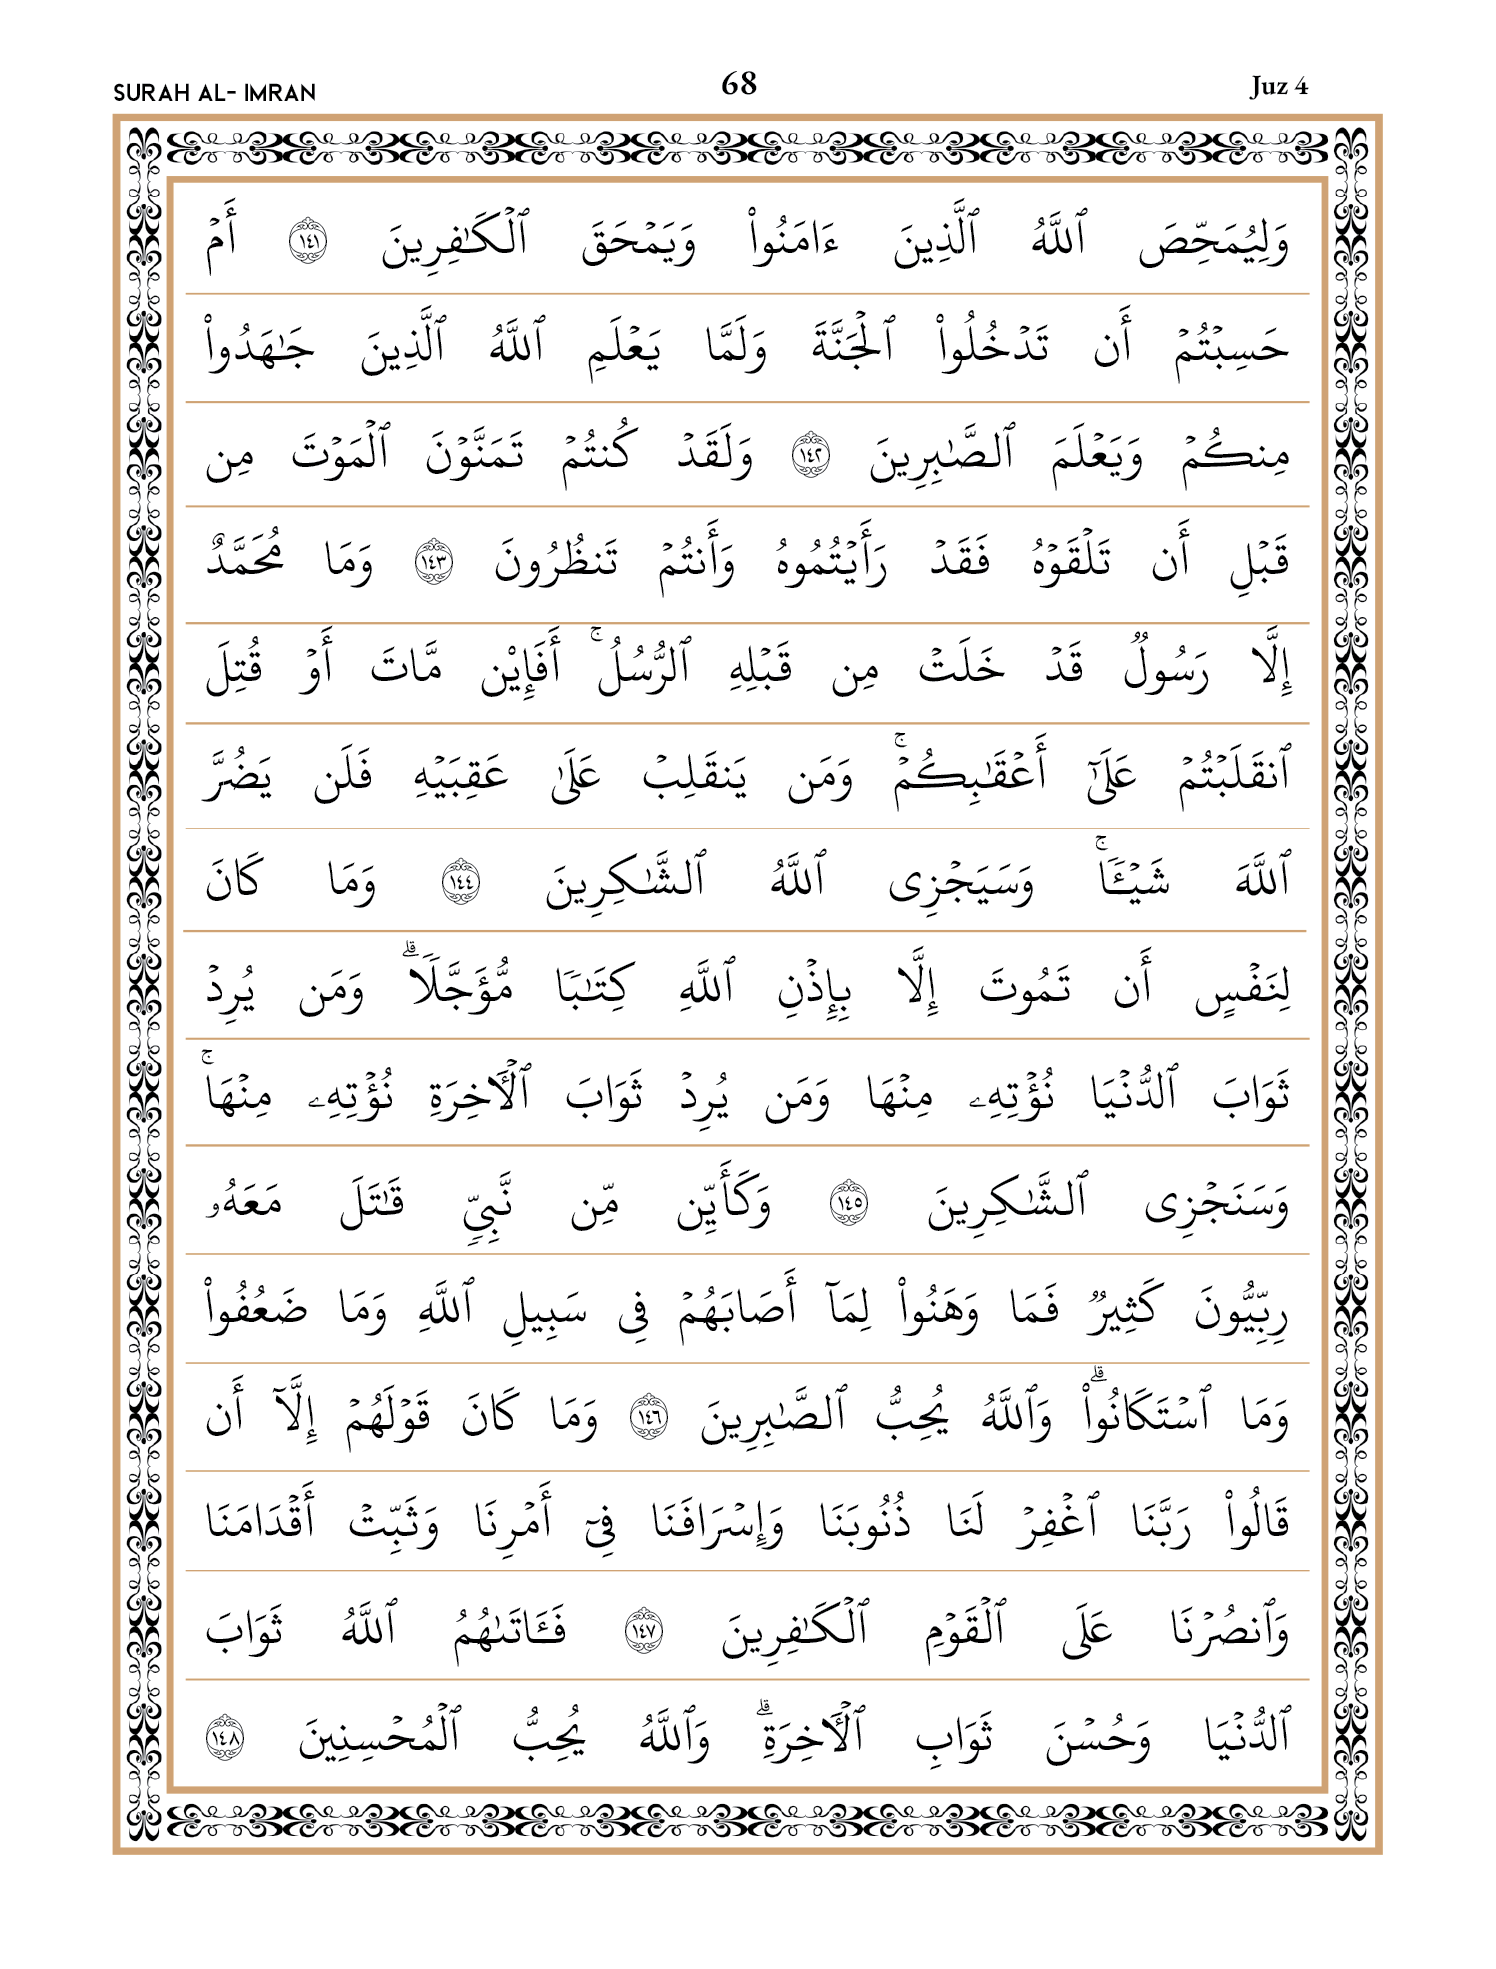 SURAH AL- IMRAN 68 Juz 4
وَلِيُمَحِّصَ ٱللَّهُ ٱلَّذِينَ ءَامَنُوا۟ وَيَمْحَقَ ٱلْكَـٰفِرِينَ ١٤١ أَمْ
حَسِبْتُمْ أَن تَدْخُلُوا۟ ٱلْجَنَّةَ وَلَمَّا يَعْلَمِ ٱللَّهُ ٱلَّذِينَ جَـٰهَدُوا۟
مِنكُمْ وَيَعْلَمَ ٱلصَّـٰبِرِينَ ١٤٢ وَلَقَدْ كُنتُمْ تَمَنَّوْنَ ٱلْمَوْتَ مِن
قَبْلِ أَن تَلْقَوْهُ فَقَدْ رَأَيْتُمُوهُ وَأَنتُمْ تَنظُرُونَ ١٤٣ وَمَا مُحَمَّدٌ
إِلَّا رَسُولٌ قَدْ خَلَتْ مِن قَبْلِهِ ٱلرُّسُلُ ۚ أَفَإِي۟ن مَّاتَ أَوْ قُتِلَ
ٱنقَلَبْتُمْ عَلَىٰٓ أَعْقَـٰبِكُمْ ۚ وَمَن يَنقَلِبْ عَلَىٰ عَقِبَيْهِ فَلَن يَضُرَّ
ٱللَّهَ شَيْـًٔا ۚ وَسَيَجْزِى ٱللَّهُ ٱلشَّـٰكِرِينَ ١٤٤ وَمَا كَانَ
لِنَفْسٍ أَن تَمُوتَ إِلَّا بِإِذْنِ ٱللَّهِ كِتَـٰبًا مُّؤَجَّلًا ۗ وَمَن يُرِدْ
ثَوَابَ ٱلدُّنْيَا نُؤْتِهِۦ مِنْهَا وَمَن يُرِدْ ثَوَابَ ٱلْـَٔاخِرَةِ نُؤْتِهِۦ مِنْهَا ۚ
وَسَنَجْزِى ٱلشَّـٰكِرِينَ ١٤٥ وَكَأَيِّن مِّن نَّبِىٍّ قَـٰتَلَ مَعَهُۥ
رِبِّيُّونَ كَثِيرٌ فَمَا وَهَنُوا۟ لِمَآ أَصَابَهُمْ فِى سَبِيلِ ٱللَّهِ وَمَا ضَعُفُوا۟
وَمَا ٱسْتَكَانُوا۟ ۗ وَٱللَّهُ يُحِبُّ ٱلصَّـٰبِرِينَ ١٤٦ وَمَا كَانَ قَوْلَهُمْ إِلَّآ أَن
قَالُوا۟ رَبَّنَا ٱغْفِرْ لَنَا ذُنُوبَنَا وَإِسْرَافَنَا فِىٓ أَمْرِنَا وَثَبِّتْ أَقْدَامَنَا
وَٱنصُرْنَا عَلَى ٱلْقَوْمِ ٱلْكَـٰفِرِينَ ١٤٧ فَـَٔاتَىٰهُمُ ٱللَّهُ ثَوَابَ
ٱلدُّنْيَا وَحُسْنَ ثَوَابِ ٱلْـَٔاخِرَةِ ۗ وَٱللَّهُ يُحِبُّ ٱلْمُحْسِنِينَ ١٤٨